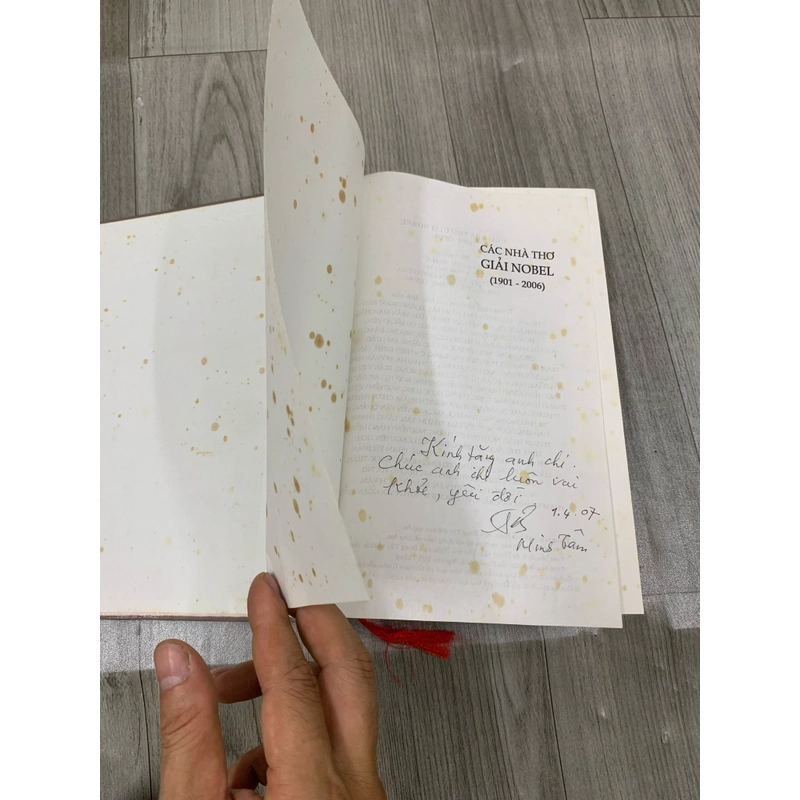 CÁC NHÀ THƠ
GIẢI NOBEL
(1901 - 2006)
Kính tặng anh chị.
Chúc anh chị luôn vui
khỏe, yêu đời
1.4.07
Minh Tâm